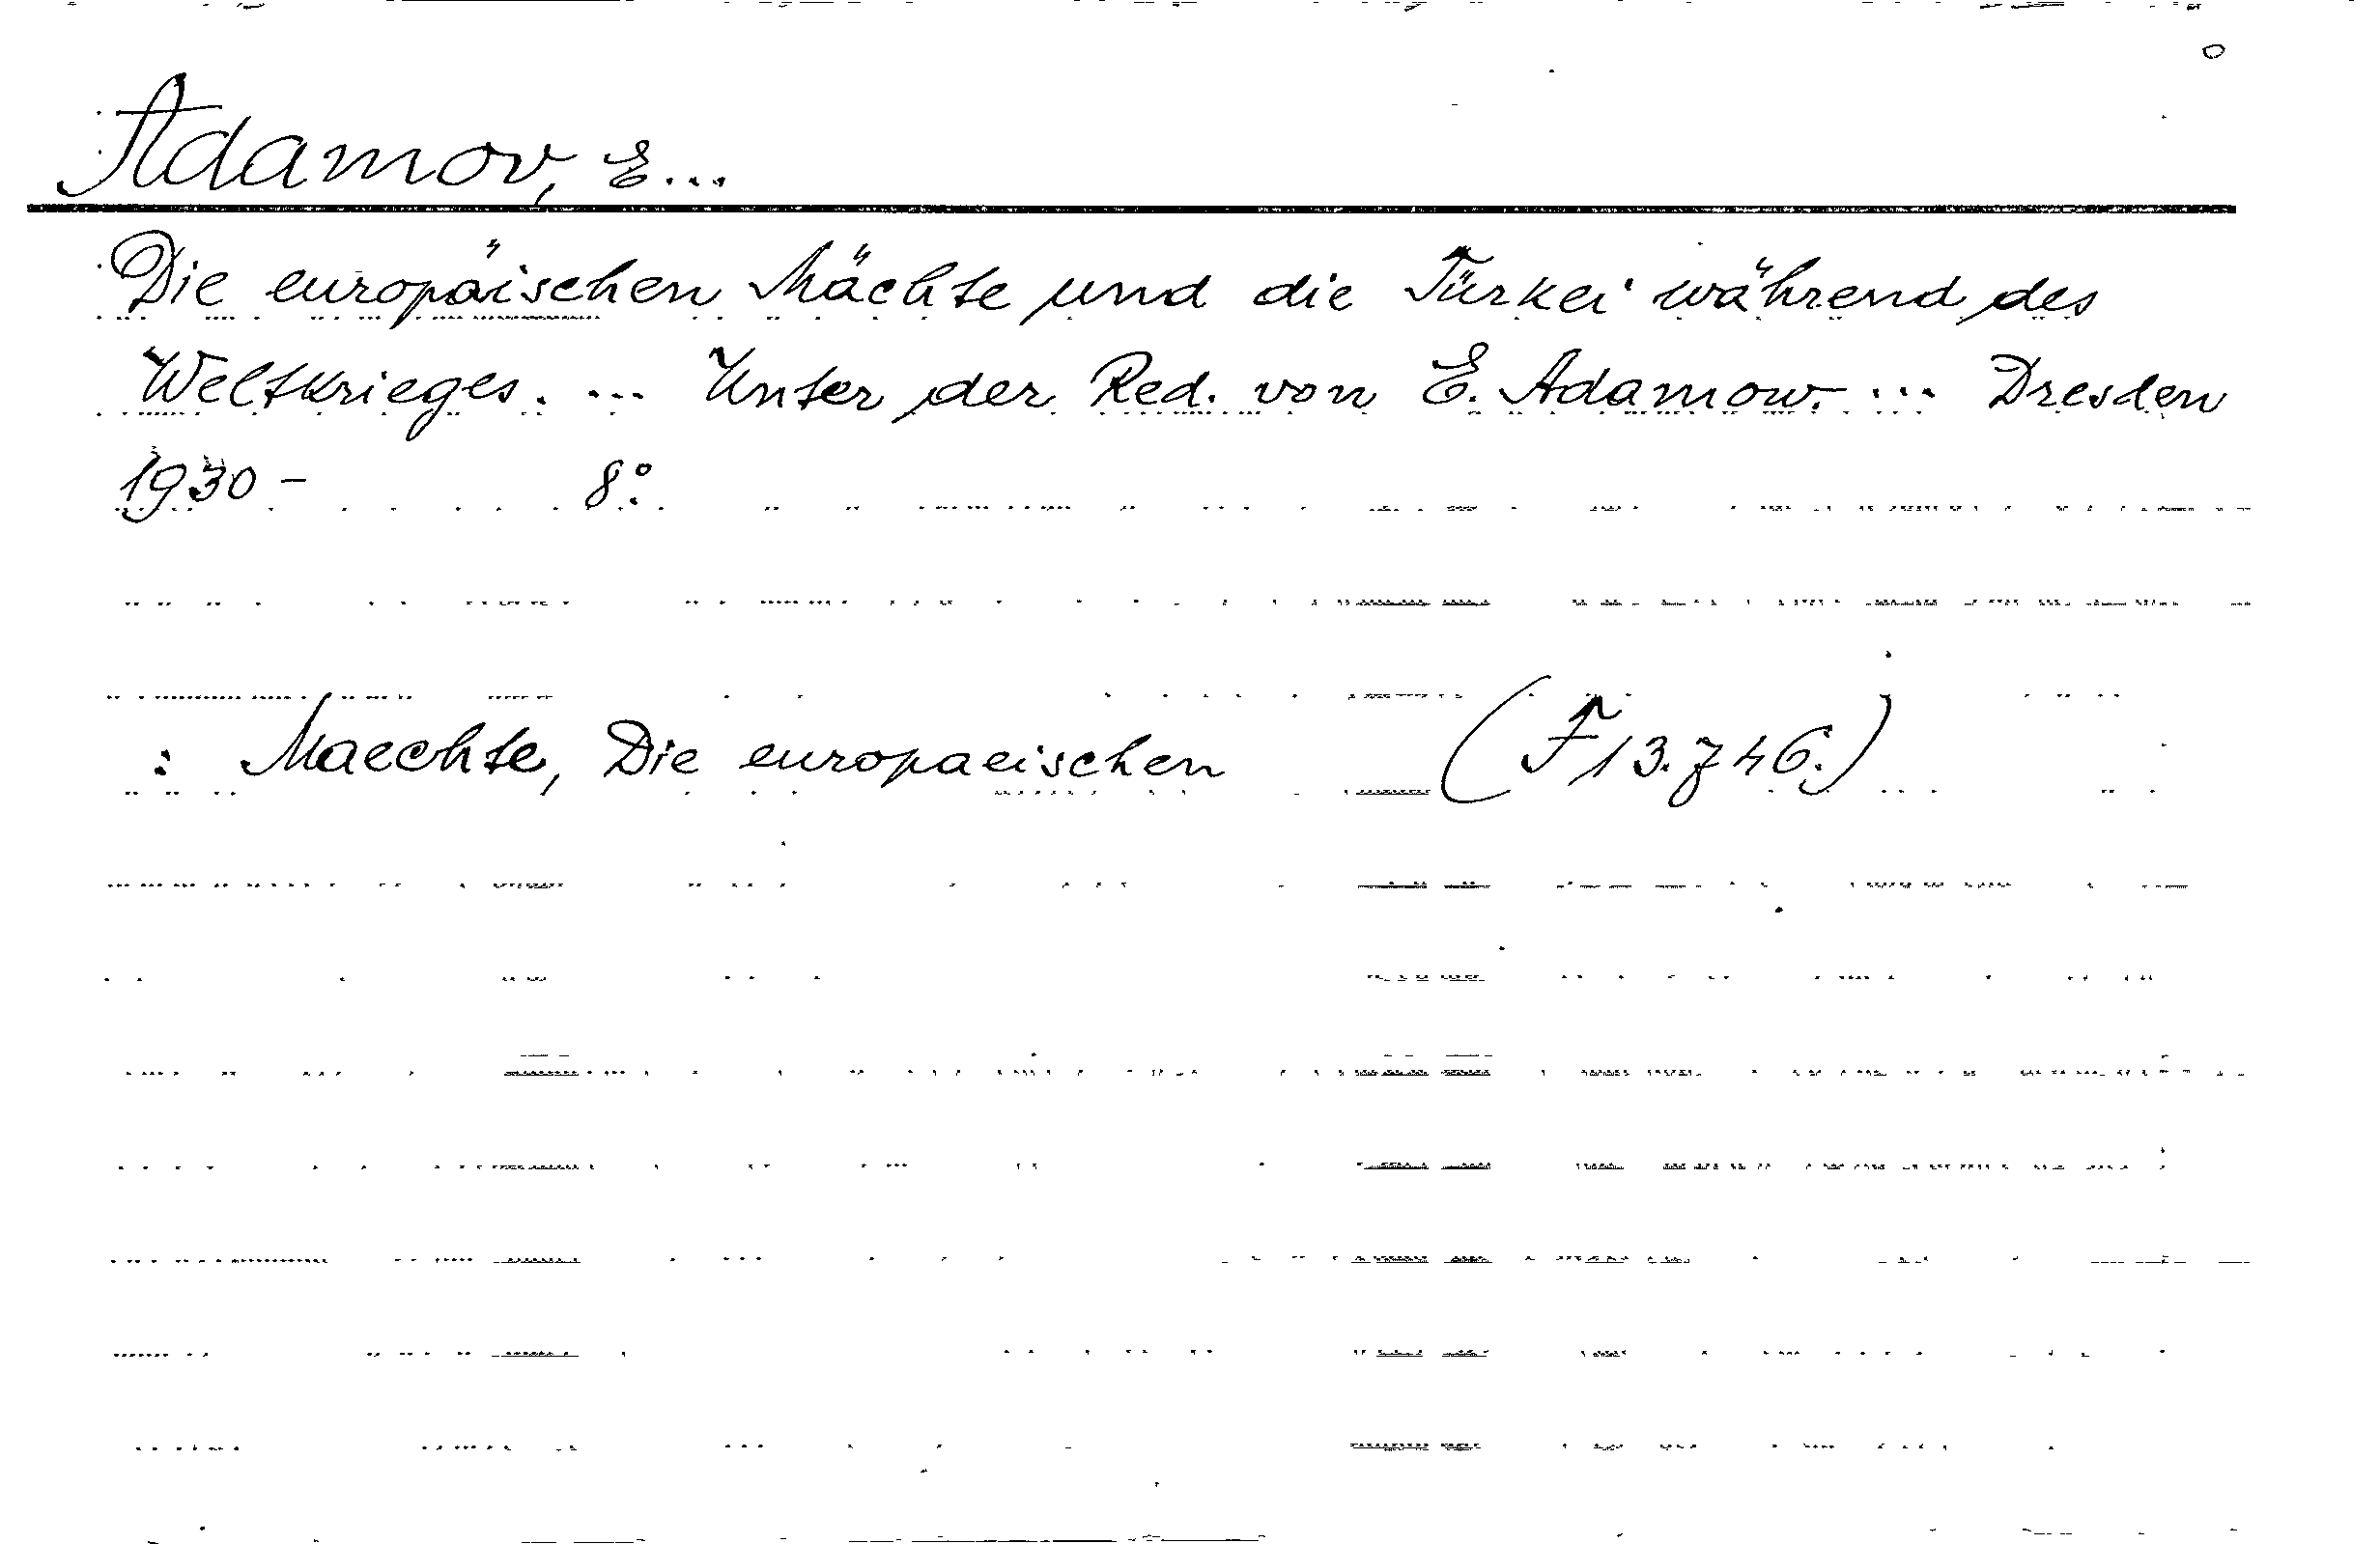 Adamov, E...
Die europäischen Mächte und die Türkei während des
Weltkrieges. ... Unter der Red. von E. Adamow. ... Dresden
1930 - 8°.
: Maechte, Die europaeischen (F 13.746.)